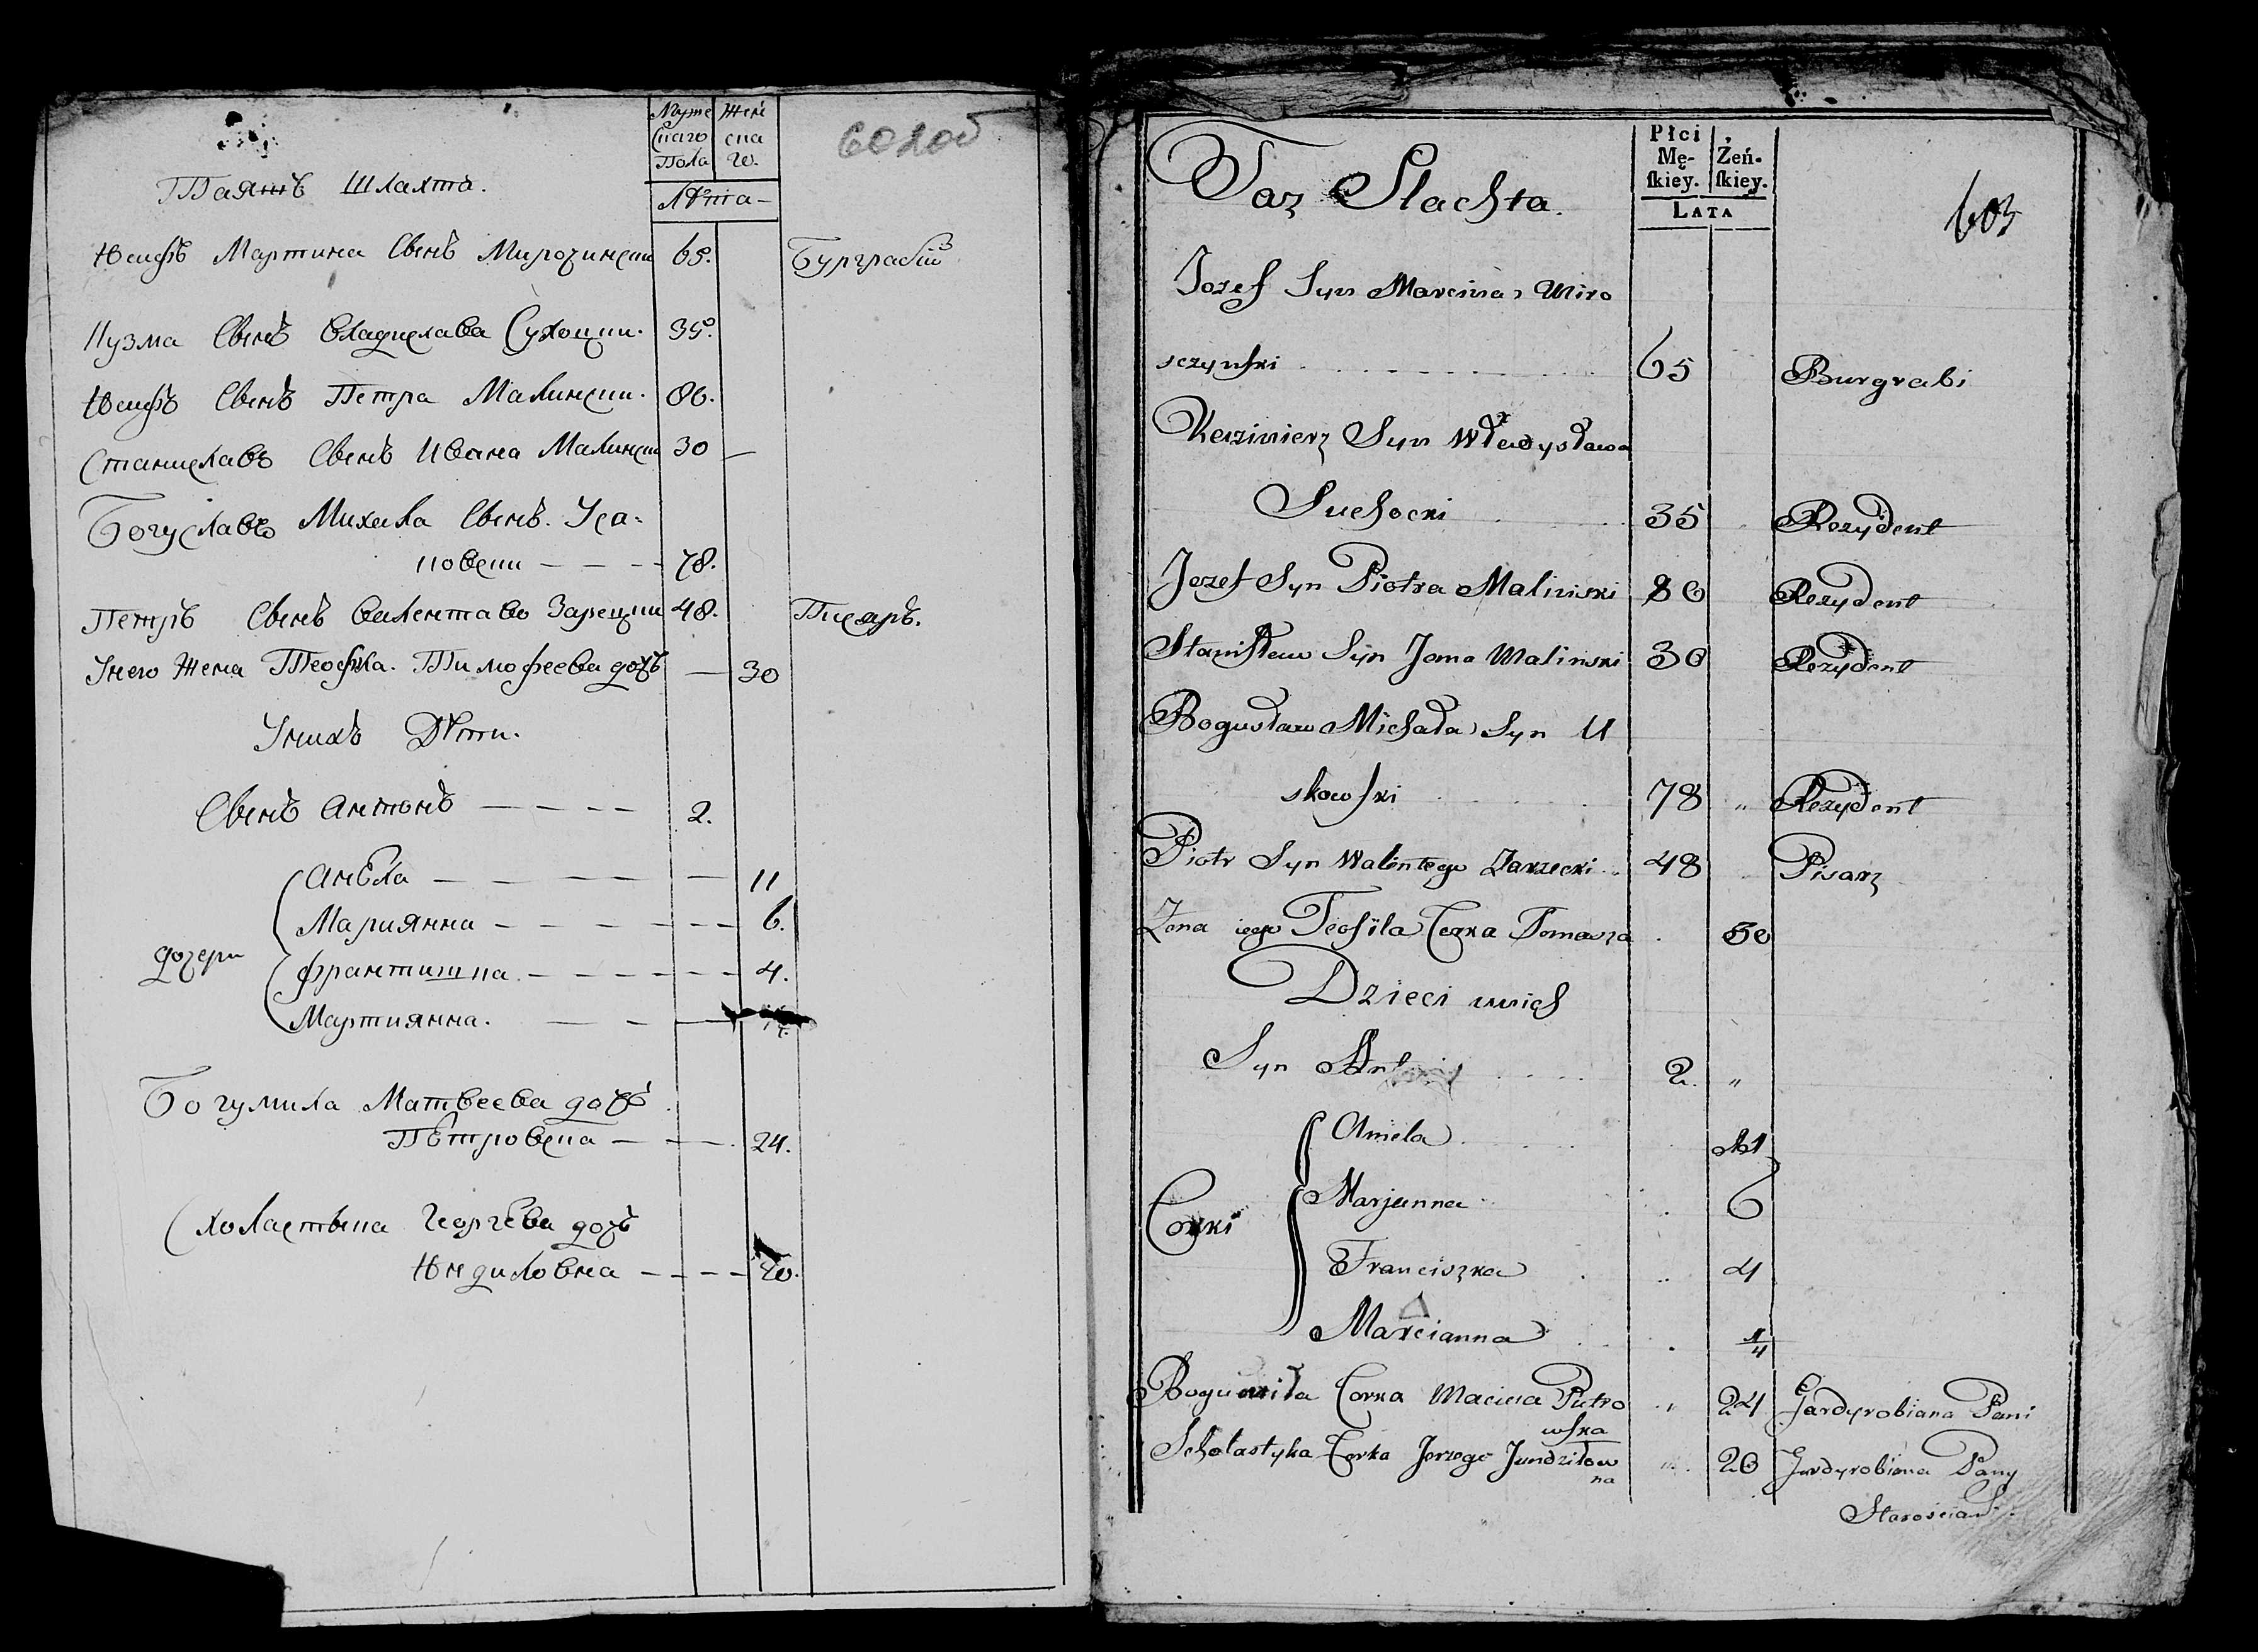 Муже
скаго
Пола
Жен
ска
го.
Лѣта
602 об
Таяжъ Шляхта.
Юсифъ Мартина Сынъ Мирочински 65. Бурграбiй
Кузма Сынъ Владислава Сухоцки. 35.
Юсифъ Сынъ Петра Малински. 80.
Станиславъ Сынъ Ивана Малински 30
Богуславъ Михала Сынъ. Уса-
ковски 78.
Петръ Сынъ Валентаво Зарецки 48. Писаръ.
Унего Жена Теофила Тимофеева дочь 30
Унихъ Дѣти.
Сынъ Антонъ 2.
Анѣла 11
Мариянна 6.
дочери
Франтишка 4.
Мартиянна.
Богумила Матвеева дочь
Пѣтровска 24.
Схоластыка Георгева дочь
Юндиловна 20.
Taz Slachta.
Płci
Mę-
skiey.
Żeń-
skiey.
LATA
603
Jozef Syn Marcina Miro
sczynski 65 Burgrabi
Kazimierz Syn Władysława
Suchocki 35 Rezydent
Jozef Syn Piotra Malinski 80 Rezydent
Stanisław Syn Jana Malinski 30 Rezydent
Bogusław Michała Syn U
skowski 78 " Rezydent
Piotr Syn Walentego Zarzecki 48 Pisarz
Zona iego Teofila Corka Tomasza 30
Dzieci unich
Syn Antoni 2. "
Aniela 11
Marjanna 6
Corki
Franciszka 4
Marcianna 1/4
Bogumiła Corka Macieia Pietro " 24 Gardyrobiana Pani
wska
Scholastyka Corka Jerzego Jundziłow 20 Gardyrobiana Pany
na
Starościani